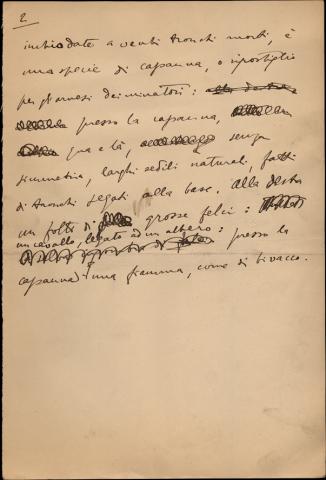 2
inchiodate a venti tronchi morti, è
una specie di capanna, o ripostiglio
per gli arnesi dei minatori :
presso la capanna,
qua e là, senza
simmetria, larghi sedili naturali, fatti
di tronchi segati alla base. alla destra
un folto di grosse felci :
un cavallo, legato ad un albero : presso la
capanna una fiamma, come di bivacco.